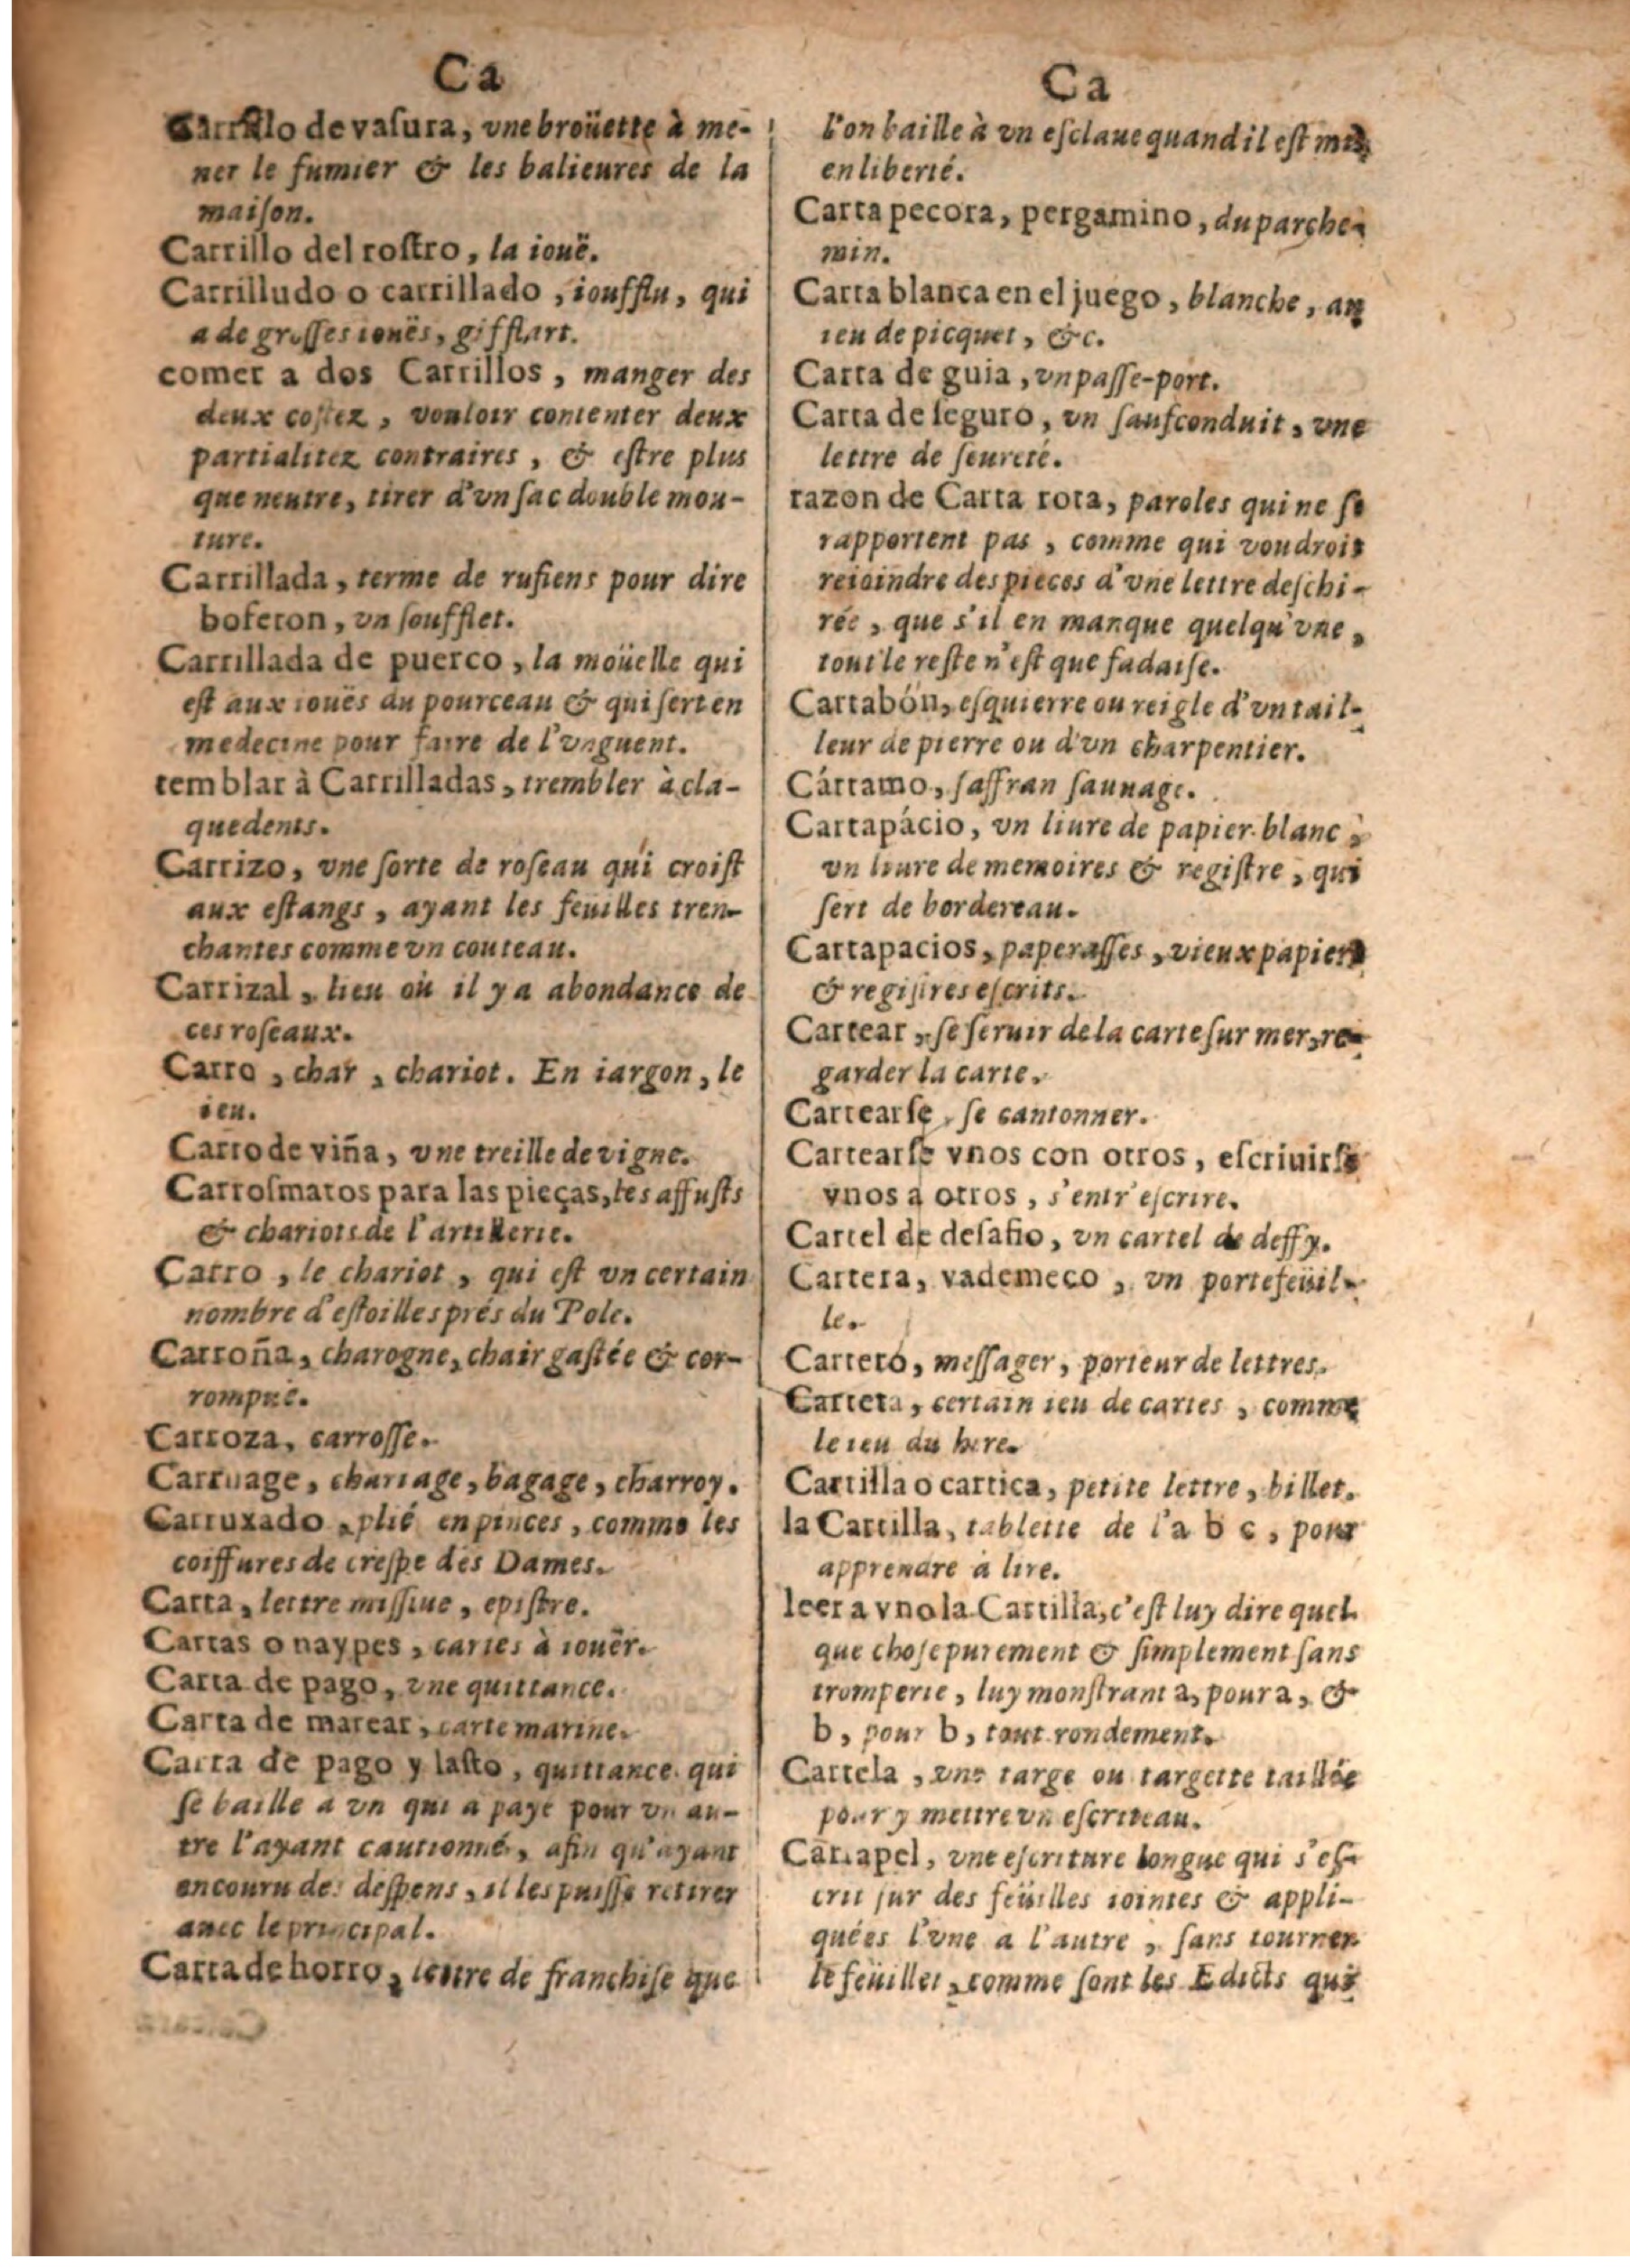 Ca
Carrillo de vaſura, vne broüette à me-
ner le fumier & les balieures de la
maiſon.
Carrillo del roſtro, la iouë.
Carrilludo o carrillado, ioufflu, qui
a de groſſes iouës, gifflart.
comer a dos Carrillos, manger des
deux coſtez, vouloir contenter deux
partialitez contraires, & eſtre plus
que neutre, tirer d'vn ſac double mou-
ture.
Carrillada, terme de rufiens pour dire
bofeton, vn ſoufflet.
Carrillada de puerco, la moüelle qui
eſt aux iouës du pourceau & qui ſert en
medecine pour faire de l'vnguent.
temblar à Carrilladas, trembler à cla-
quedents.
Carrizo, vne ſorte de roſeau qui croiſt
aux eſtangs, ayant les feuilles tren-
chantes comme vn couteau.
Carrizal, lieu où il y a abondance de
ces roſeaux.
Carro, char, chariot. En iargon, le
ieu.
Carro de viña, vne treille de vigne.
Carroſmatos para las pieças, les affuſts
& chariots de l'artillerie.
Carro, le chariot, qui eſt vn certain
nombre d'eſtoilles prés du Pole.
Carroña, charogne, chair gaſtée & cor-
rompuë.
Carroza, carroſſe.
Carruage, chariage, bagage, charroy.
Carruxado, plié en pinces, comme les
coiffures de creſpe des Dames.
Carta, lettre miſſiue, epiſtre.
Cartas o naypes, cartes à iouër.
Carta de pago, vne quittance.
Carta de marear, carte marine.
Carta de pago y laſto, quittance qui
ſe baille a vn qui a payé pour vn au-
tre l'ayant cautionné, afin qu'ayant
encouru des deſpens, il les puiſſe retirer
auec le principal.
Carta de horro, lettre de franchiſe que
Ca
l'on baille à vn eſclaue quand il eſt mis
en liberté.
Carta pecora, pergamino, du parche-
min.
Carta blanca en el juego, blanche, au
ieu de picquet, &c.
Carta de guia, vn paſſe-port.
Carta de ſeguro, vn ſaufconduit, vne
lettre de ſeureté.
razon de Carta rota, paroles qui ne ſe
rapportent pas, comme qui voudroit
reioindre des pieces d'vne lettre deſchi-
rée, que s'il en manque quelqu'vne,
tout le reſte n'eſt que fadaiſe.
Cartabón, eſquierre ou reigle d'vn tail-
leur de pierre ou d'vn charpentier.
Cártamo, ſaffran ſauuage.
Cartapácio, vn liure de papier blanc,
vn liure de memoires & regiſtre, qui
ſert de bordereau.
Cartapacios, paperaſſes, vieux papiers
& regiſtres eſcrits.
Cartear, ſe ſeruir de la carte ſur mer, re-
garder la carte.
Cartearſe, ſe cantonner.
Cartearſe vnos con otros, eſcriuirſe
vnos a otros, s'entr'eſcrire.
Cartel de deſafio, vn cartel de deffy.
Cartera, vademeco, vn portefeüil-
le.
Carteró, meſſager, porteur de lettres.
Carteta, certain ieu de cartes, comme
le ieu du here.
Cartilla o cartica, petite lettre, billet.
la Cartilla, tablette de l'a b c, pour
apprendre à lire.
leer a vno la Cartilla, c'eſt luy dire quel-
que choſe purement & ſimplement ſans
tromperie, luy monſtrant a, pour a, &
b, pour b, tout rondement.
Cartela, vne targe ou targette taillée
pour y mettre vn eſcriteau.
Cartapel, vne eſcriture longue qui s'eſ-
crit ſur des feüilles iointes & appli-
quées l'vne a l'autre, ſans tourner
le feüillet, comme ſont les Edicts qui